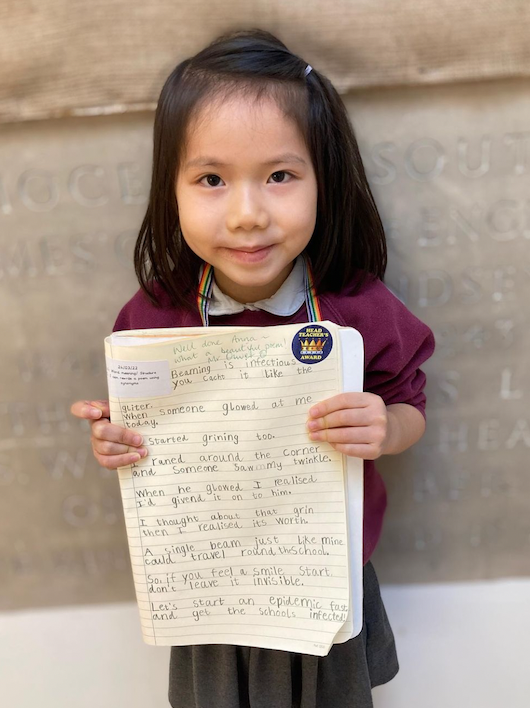 Well done Anna -
What a beautiful poem!
HEAD
TEACHER'S
AWARD
Beaming is infectious
you cacht it like the
gliter.
When someone glowed at me
today.
I started grining too.
I raned around the corner
and someone saw my twinkle.
When he glowed I realised
I'd givend it on to him.
I thought about that grin
then I realised its worth.
A single beam just like mine
could travel round the School.
So, if you feel a smile start
don't leave it invisible.
Let's start an epidemic fast
and get the schools infected!
SOUT
AMES